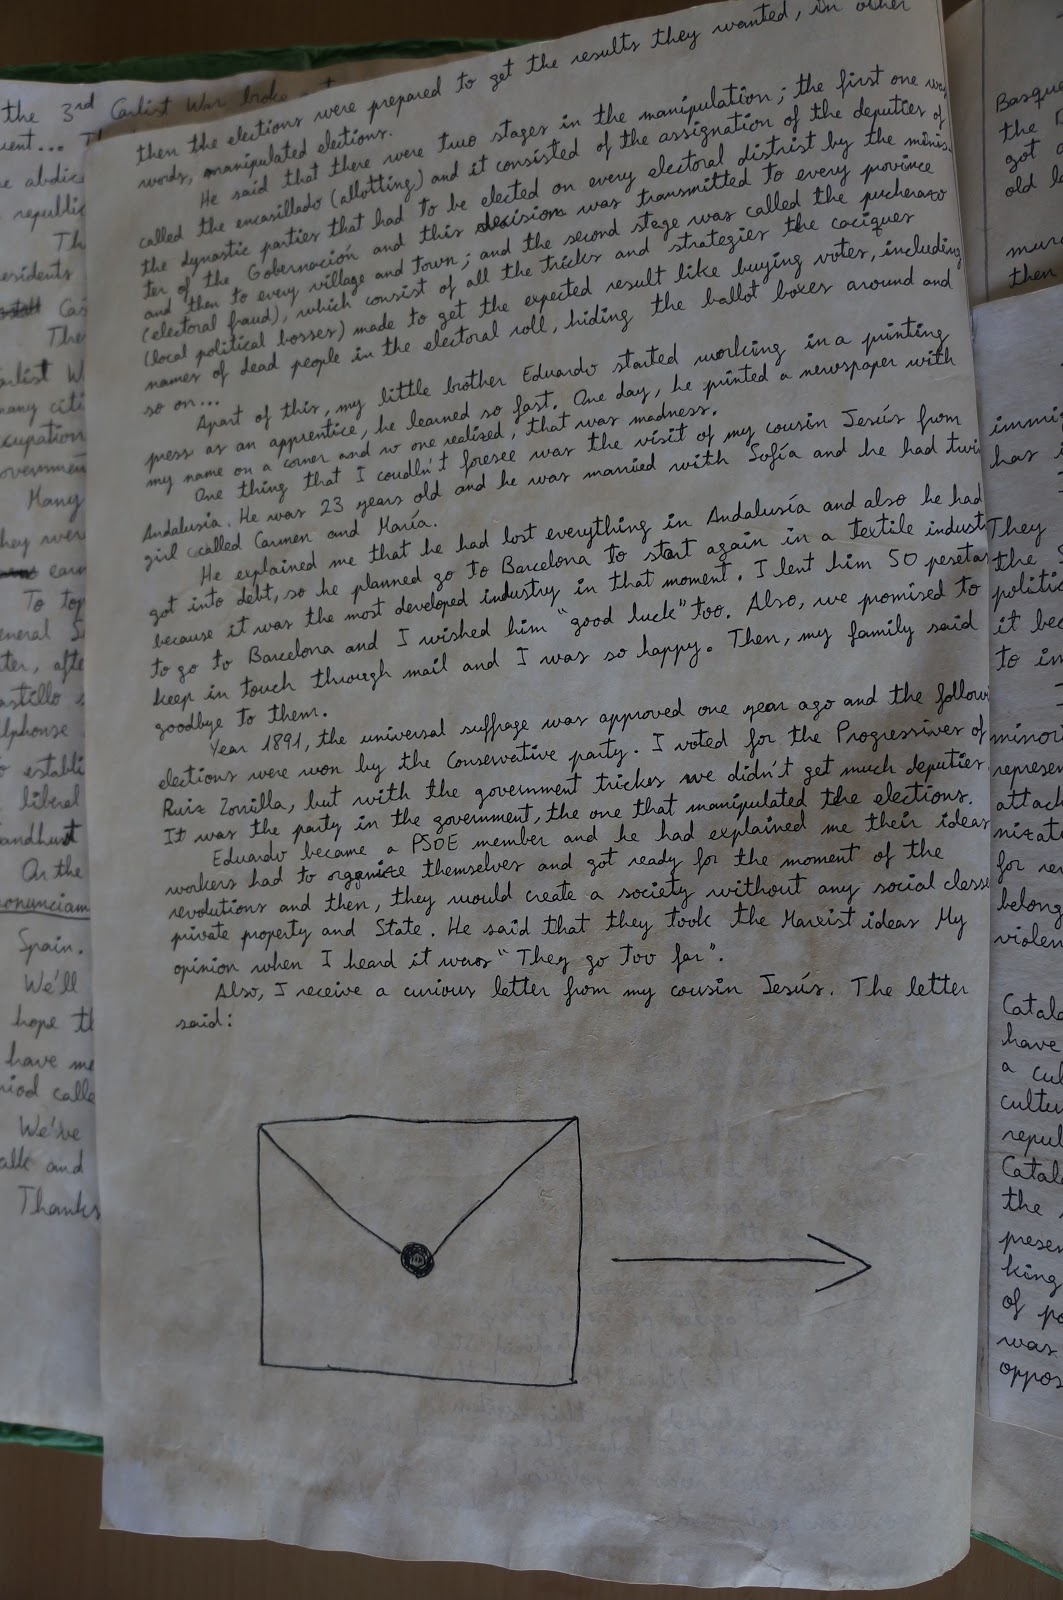 the 3rd Carlist War broke
then the elections were prepared to get the results they wanted, in other
words, manipulated elections.
He said that there were two stages in the manipulation; the first one was
called the encasillado (allotting) and it consisted of the assignation of the deputies of
the dynastic parties that had to be elected on every electoral distrist by the minis
ter of the Gobernación and this decision was transmitted to every province
and then to every village and town; and the second stage was called the pucherazo
(electoral fraud), which consist of all the tricks and strategies the caciques
(local political bosses) made to get the expected result like buying votes, including
names of dead people in the electoral roll, hiding the ballot boxes around and
so on...
Apart of this, my little brother Eduardo started working in a printing
press as an apprentice, he learned so fast. One day, he printed a newspaper with
my name on a corner and no one realized, that was madness.
One thing that I coudln't foresee was the visit of my cousin Jesús from
Andalusia. He was 23 years old and he was married with Sofía and he had twin
girl called Carmen and María.
He explained me that he had lost everything in Andalusía and also he had
got into debt, so he planned go to Barcelona to start again in a textile indust
because it was the most developed industry in that moment. I lent him 50 pesetas
to go to Barcelona and I wished him "good luck" too. Also, we promised to
keep in touch through mail and I was so happy. Then, my family said
goodbye to them.
Year 1891, the universal suffrage was approved one year ago and the followi
elections were won by the Conservative party. I voted for the Progressives of
Ruiz Zorrilla, but with the government trickes we didn't get much deputies
It was the party in the government, the one that manipulated the elections.
Eduardo became a PSOE member and he had explained me their ideas
workers had to organize themselves and got ready for the moment of the
revolutions and then, they would create a society without any social classe
private property and State. He said that they took the Marxist ideas My
opinion when I heard it was "They go too far".
Also, I receive a curious letter from my cousin Jesús. The letter
said:
republic
The
Many
hey were
To top
after
establi
liberal
On the
Spain.
We'll
hope th
have me
We've
talk and
Thanks
Basque
the B
got
old l
mur
then
immi
has
They
the
politic
it bec
to in
minori
represen
attack
for re
belong
violen
Catal
have
a cul
cultu
repul
Catal
the
presen
king
of po
was
oppos